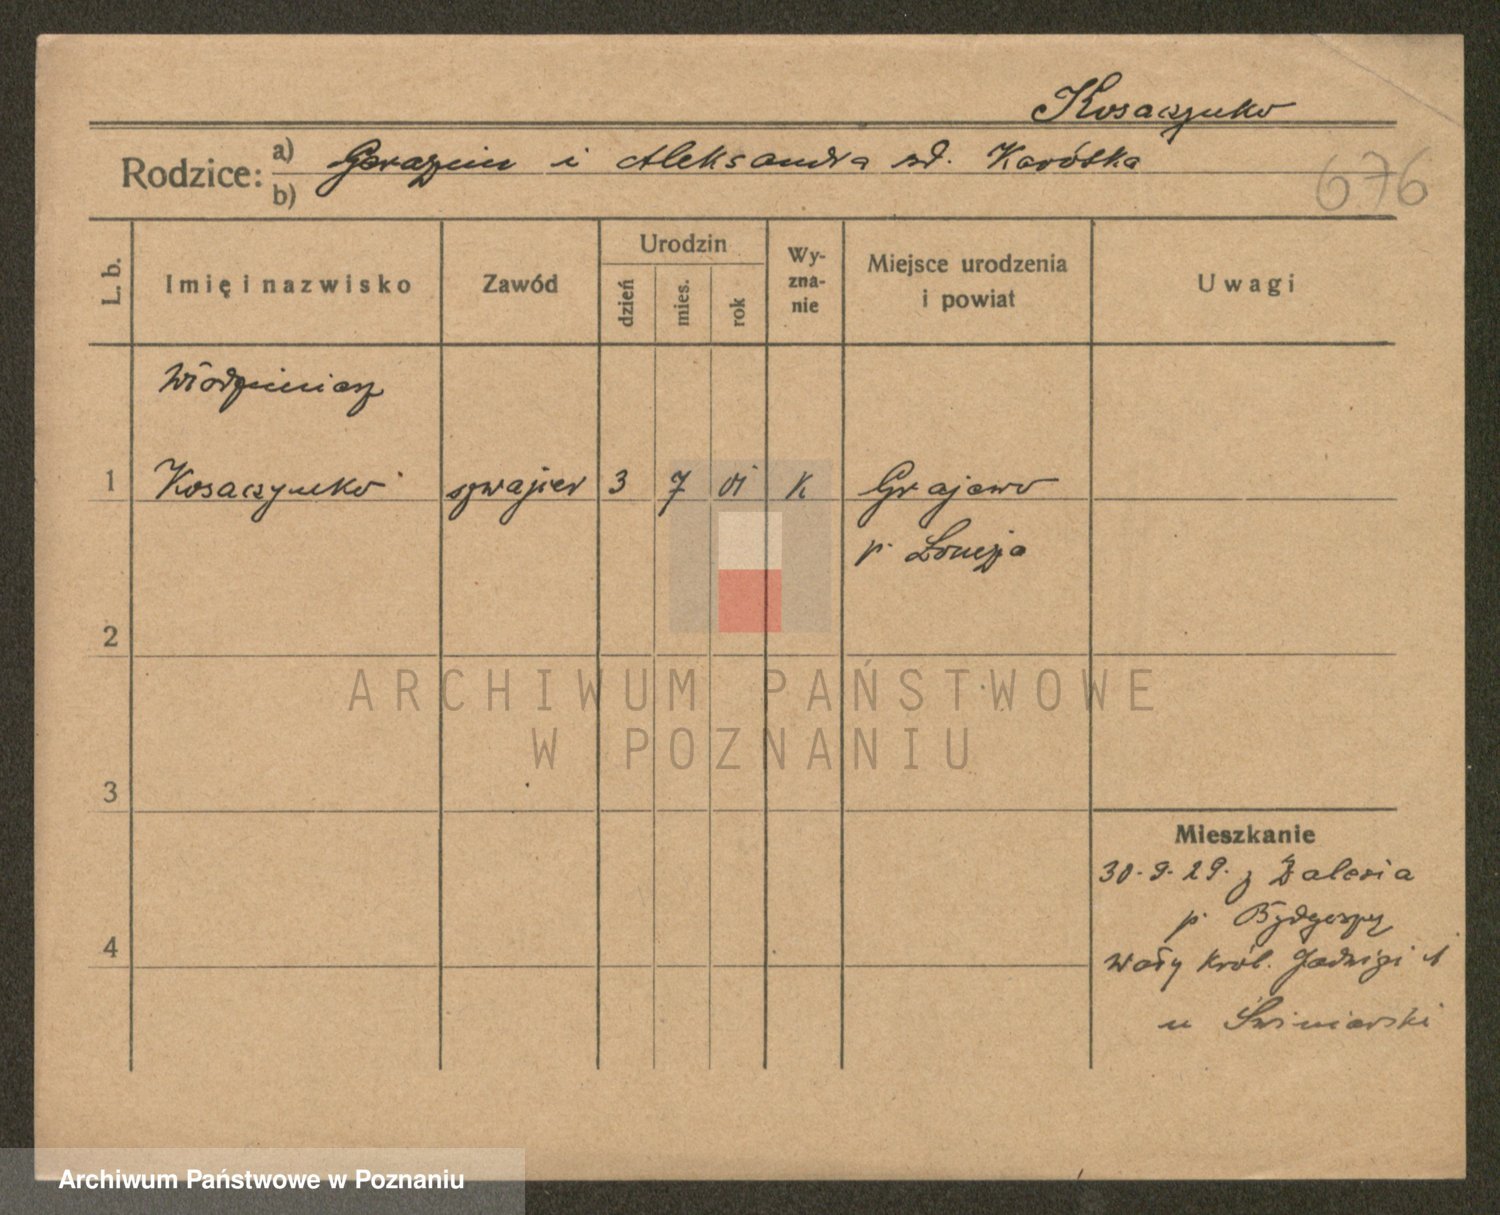 Kosaczenko
Rodzice: a) Gerazim i Aleksandra zd. Karótka
b)
676
L. b.
Imię i nazwisko
Zawód
Urodzin
dzień
mies.
rok
Wy-
zna-
nie
Miejsce urodzenia
i powiat
Uwagi
Włodzimierz
1 Kosaczenko szwajcer 3 7 01 K Grajewo
p. Łomża
2
ARCHIWUM PAŃSTWOWE
W POZNANIU
3
Mieszkanie
30.9.29. z Zalesia
p. Bydgoszcz
4
Wały Król. Jadwigi 1
u Świniarski
Archiwum Państwowe w Poznaniu